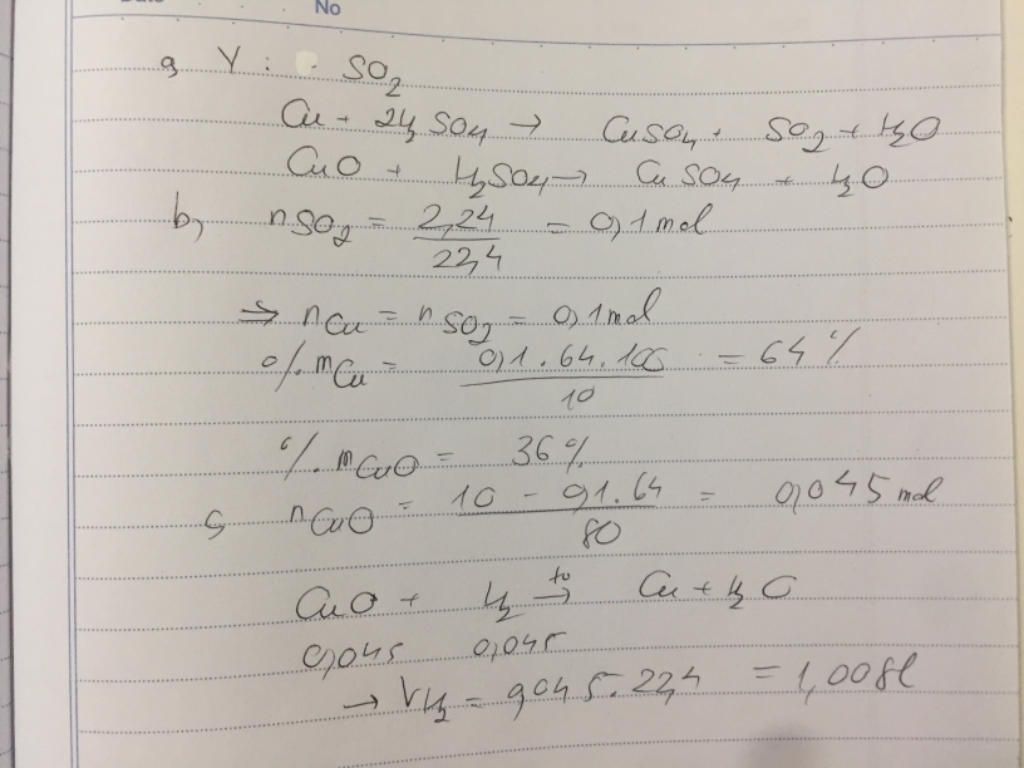 No
a, Y : SO2
Cu + 2H2SO4 → CuSO4 + SO2 + H2O
CuO + H2SO4 → CuSO4 + H2O
b, nSO2 = 2,24 / 22,4 = 0,1 mol
⇒ nCu = nSO2 = 0,1 mol
% mCu = 0,1 . 64 . 100 / 10 = 64 %
% mCuO = 36 %
c, nCuO = 10 - 0,1 . 64 / 80 = 0,045 mol
CuO + H2 →to Cu + H2O
0,045 0,045
→ VH2 = 0,045 . 22,4 = 1,008 l